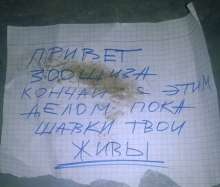 ПРИВЕТ
ЗООШИЗА
КОНЧАЙ С ЭТИМ
ДЕЛОМ ПОКА
ШАВКИ ТВОИ
ЖИВЫ